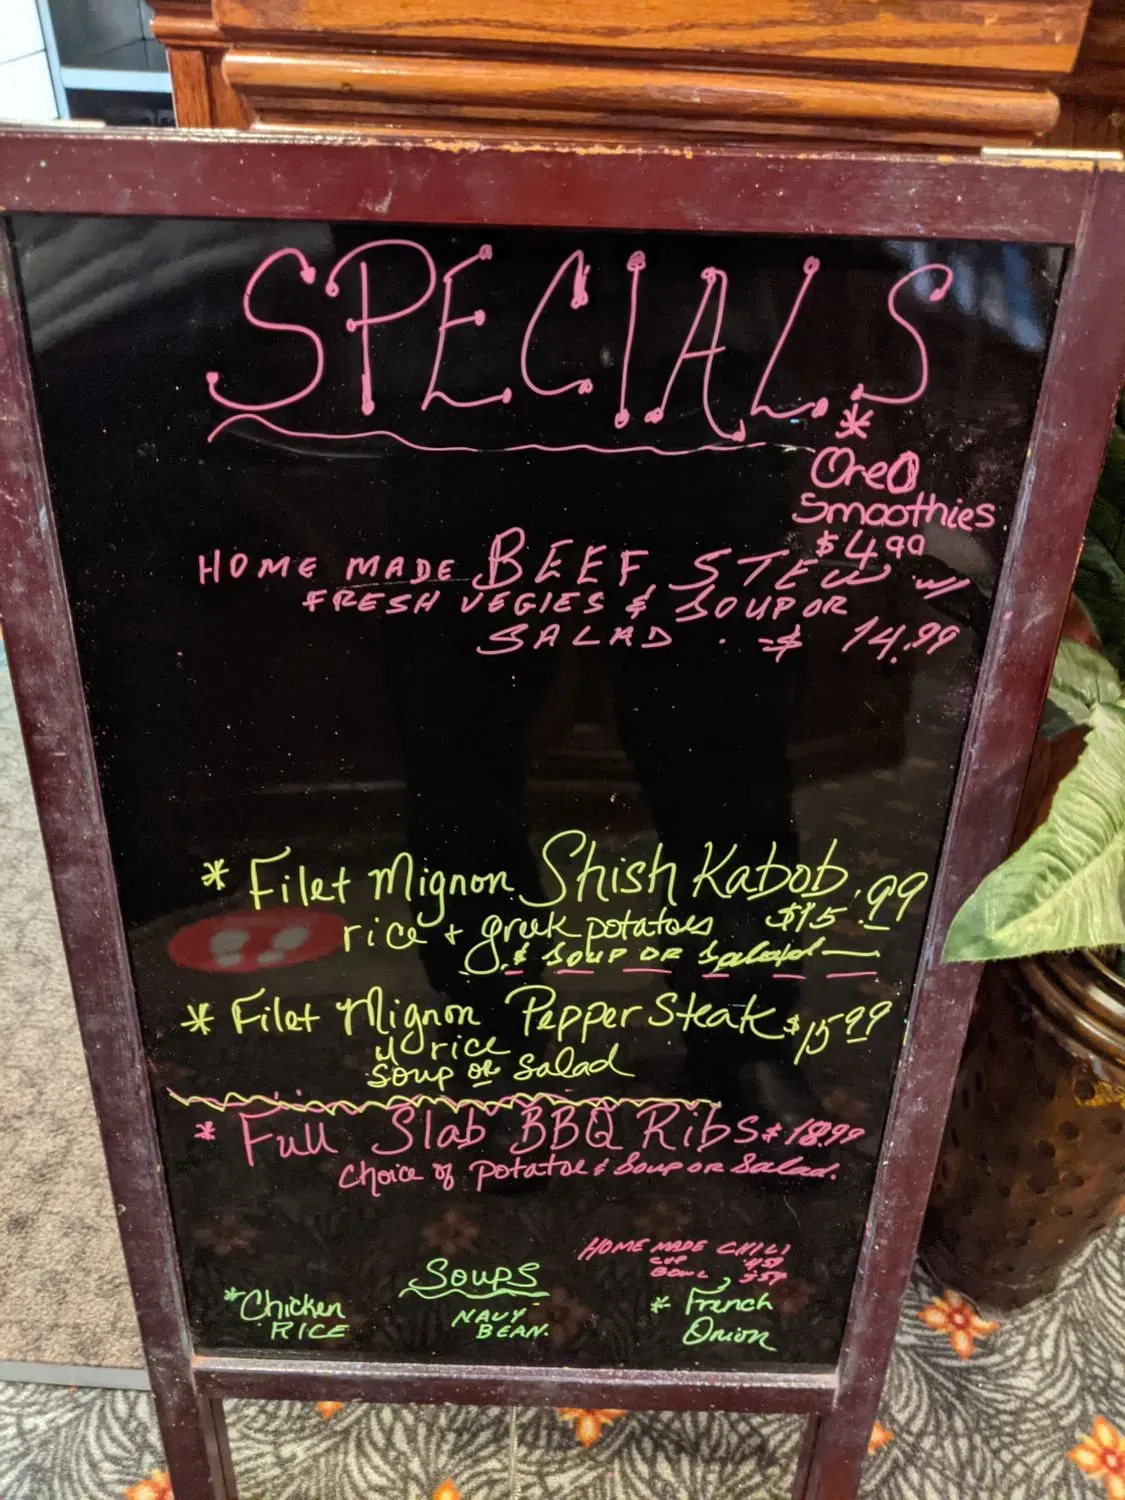 SPECIALS
*
Oreo
Smoothies
$4.99
HOME MADE BEEF STEW w/
FRESH VEGIES & SOUP OR
SALAD - $ 14.99
* Filet Mignon Shish Kabob
rice + greek potatoes $15.99
& SOUP OR Salad
* Filet Mignon Pepper Steak $15.99
w rice
soup or salad
* Full Slab BBQ Ribs $18.99
choice of potatoe & Soup OR Salad.
HOME MADE CHILI
CUP 4.59
BOWL 5.59
Soups
* Chicken
RICE
NAVY
BEAN.
* French
Onion